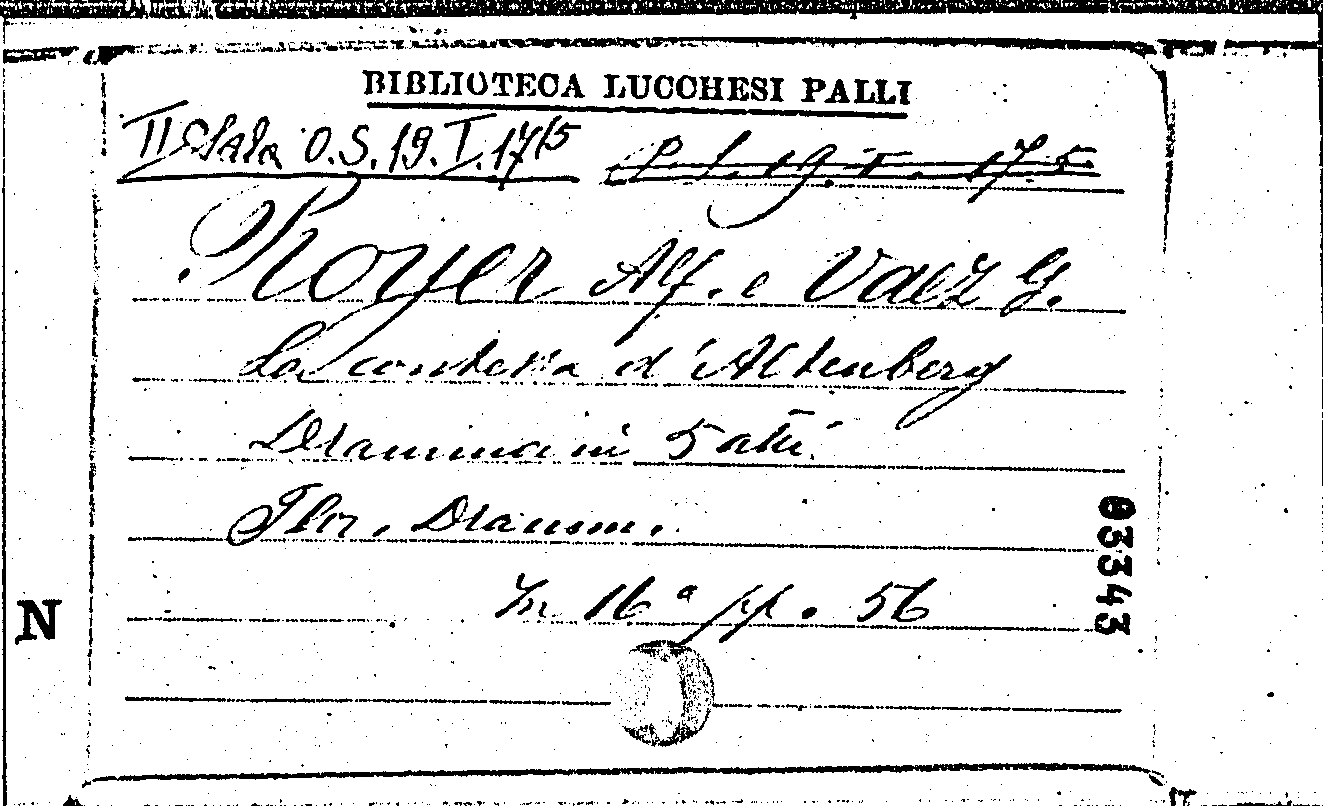 BIBLIOTECA LUCCHESI PALLI
II Sala O.S.19.I.17/5 P.S.19.I.17.5
Royer Alf. e Vaez G.
La contessa d'Altenberg
Dramma in 5 atti
Flor. Dramm.
In 16° pp. 56
03343
N